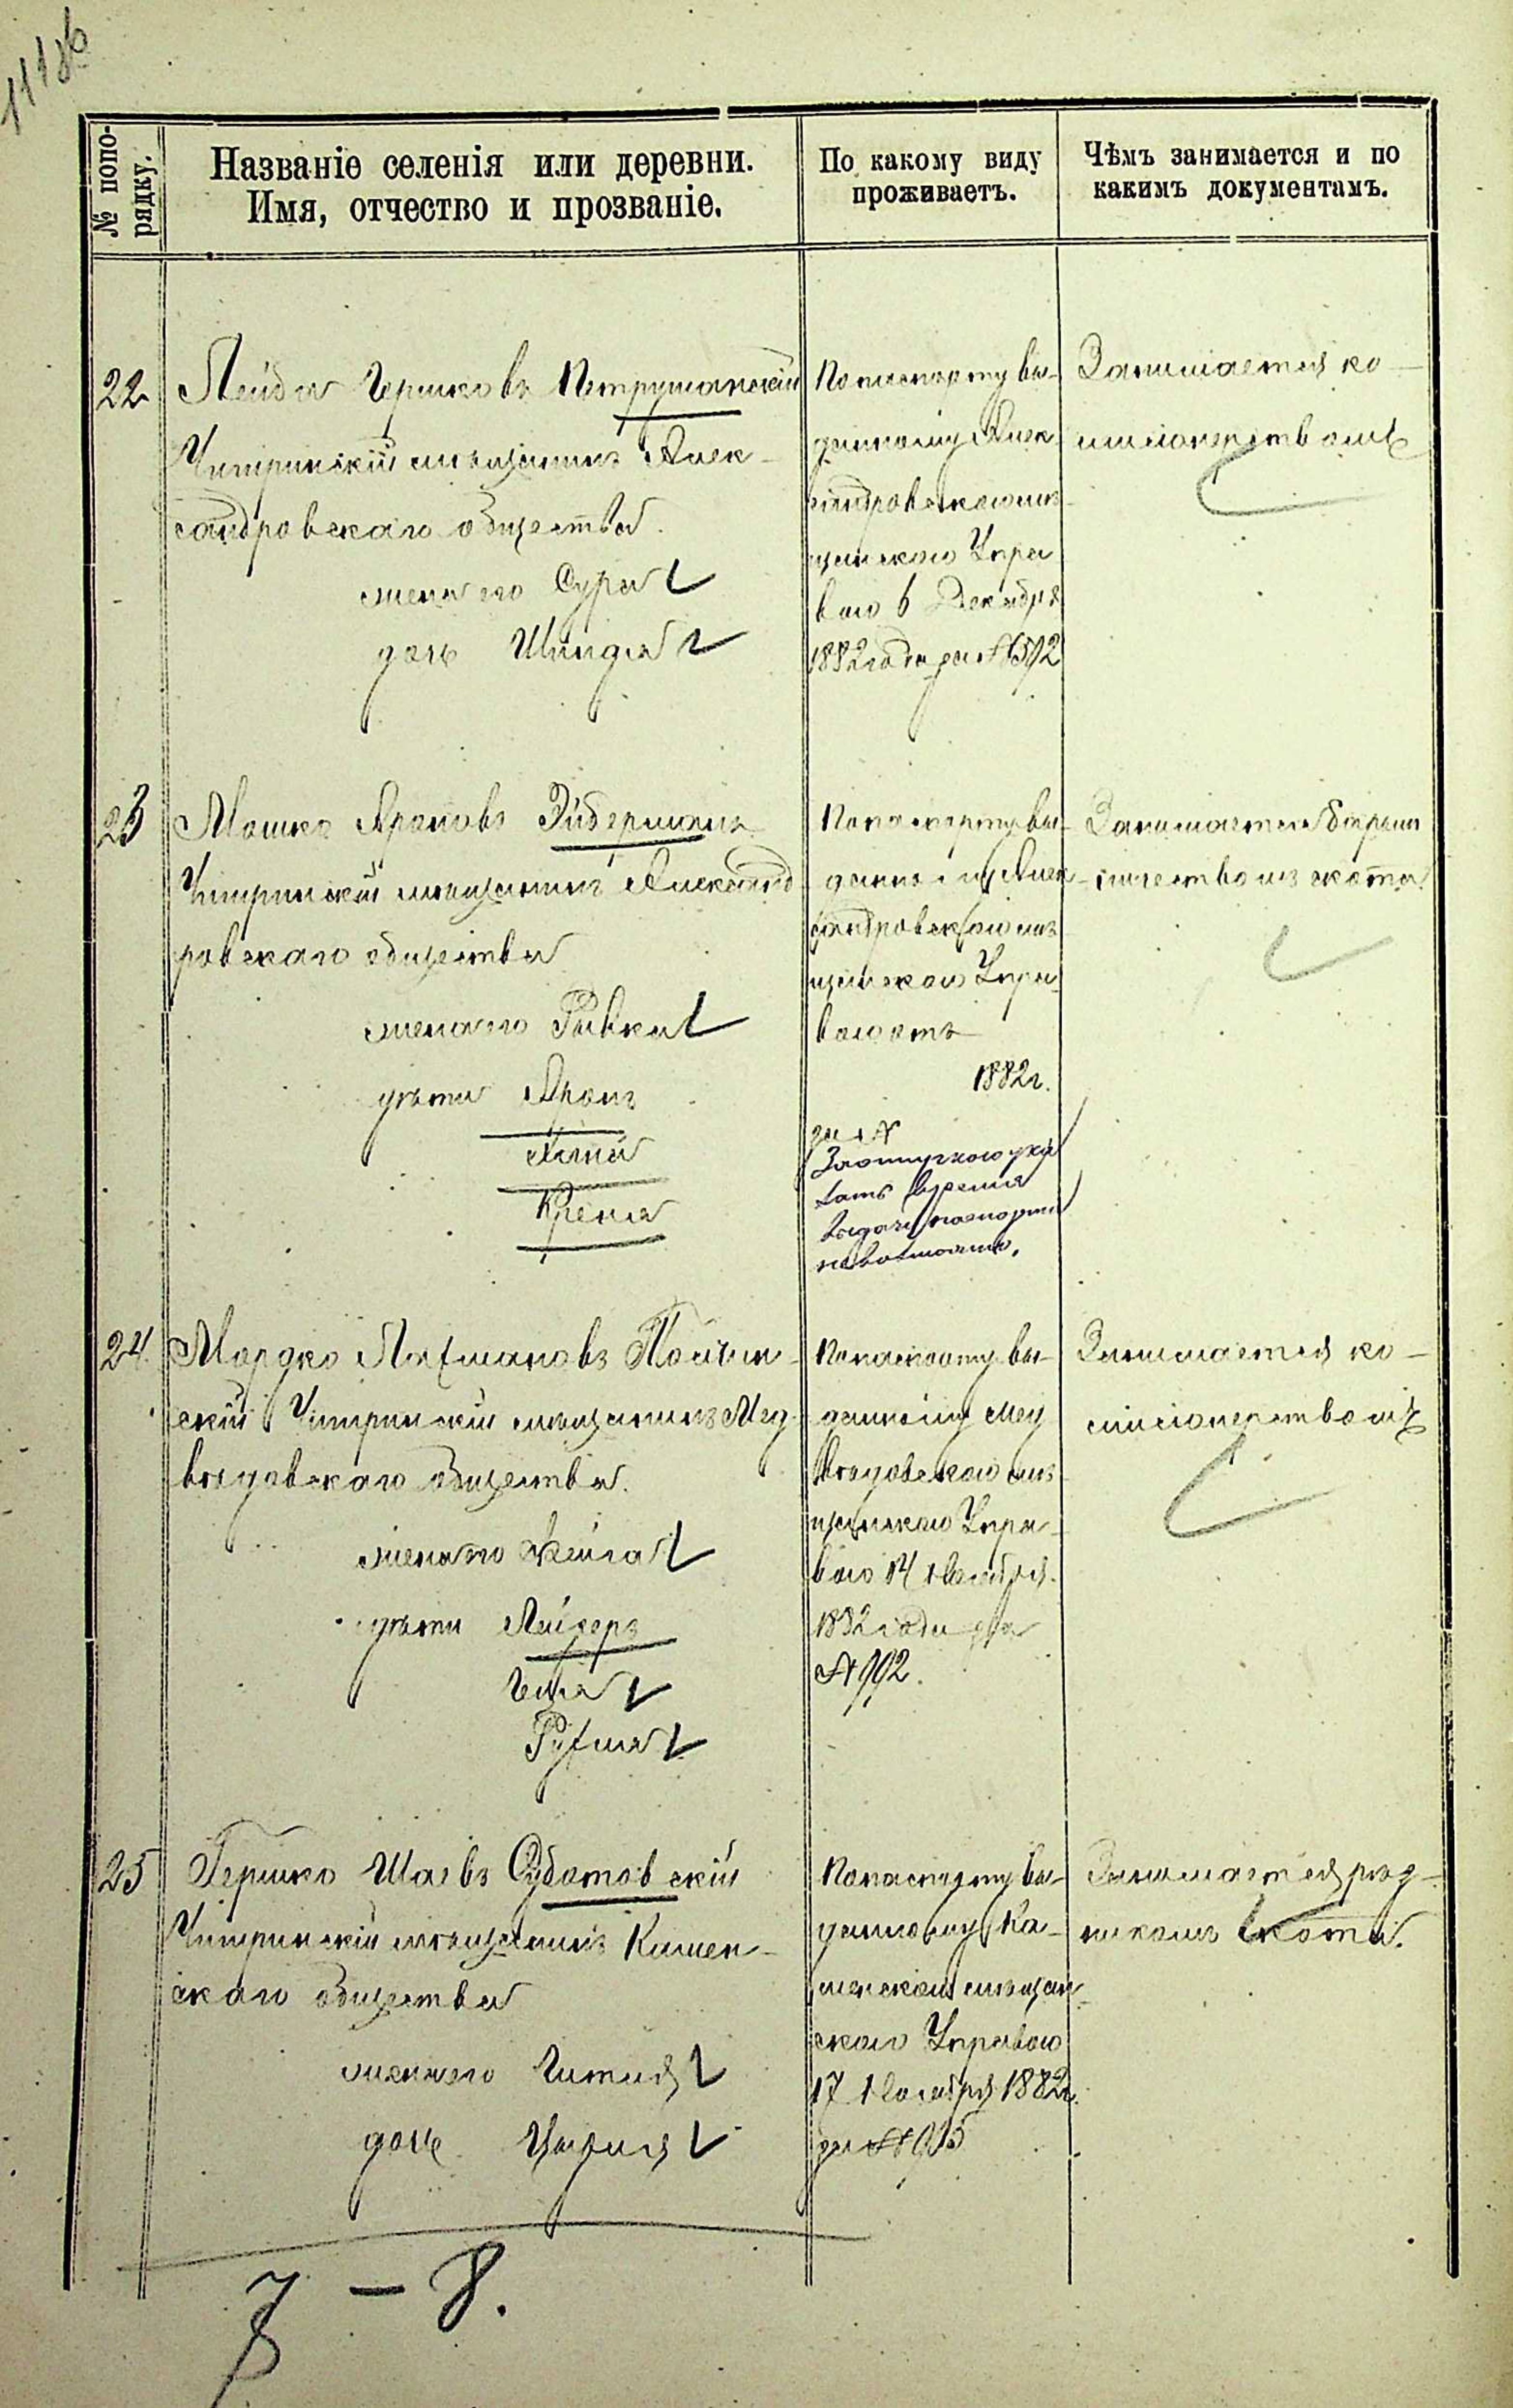 № попо-
рядку.
Названіе селенія или деревни.
Имя, отчество и прозваніе.
По какому виду
проживаетъ.
Чѣмъ занимается и по
какимъ документамъ.
22
Лейба Гершковъ Петрушанскій
Чигринскій мѣщанинъ Алек-
сандровскаго общества.
жена его Сура
дочь Шиндля
По паспорту вы-
данному Алек
сандровскою мѣ-
щанскою Упра
вою 6 Декабря
1882 года за № 592
Занимается ко-
миссіонерствомъ
23
Мошко Ароновъ Зидерманъ
Чигринскій мѣщанинъ Александ
ровскаго общества
жена его Ривка
дѣти Аронъ
Крейна
По паспорту вы-
данному Алек
сандровскою мѣ
щанскою Упра-
вою отъ
1882 г.
за №
ука
зать время
выдачи паспорта
невозможно.
Занимается
скота
24.
Мордко Лахмановъ
скій Чигринскій мѣщанинъ Мед-
вѣдовскаго общества.
жена его Фейга
дѣти Лейзеръ
Рухля
По паспорту вы-
данному Мед
вѣдовскою мѣ-
щанскою Упра-
вою 14 Ноября
1882 года за
№ 992.
Занимается ко-
миссіонерствомъ
25
Гершко Шаевъ Суботовскій
Чигринскій мѣщанинъ Камен-
скаго общества
жена его Гитля
дочь
По паспорту вы-
данному Ка-
менскою мѣщан-
скою Управою
17 Ноября 1882 г.
за № 935
Занимается рѣз-
никомъ скота.
7 - 8.